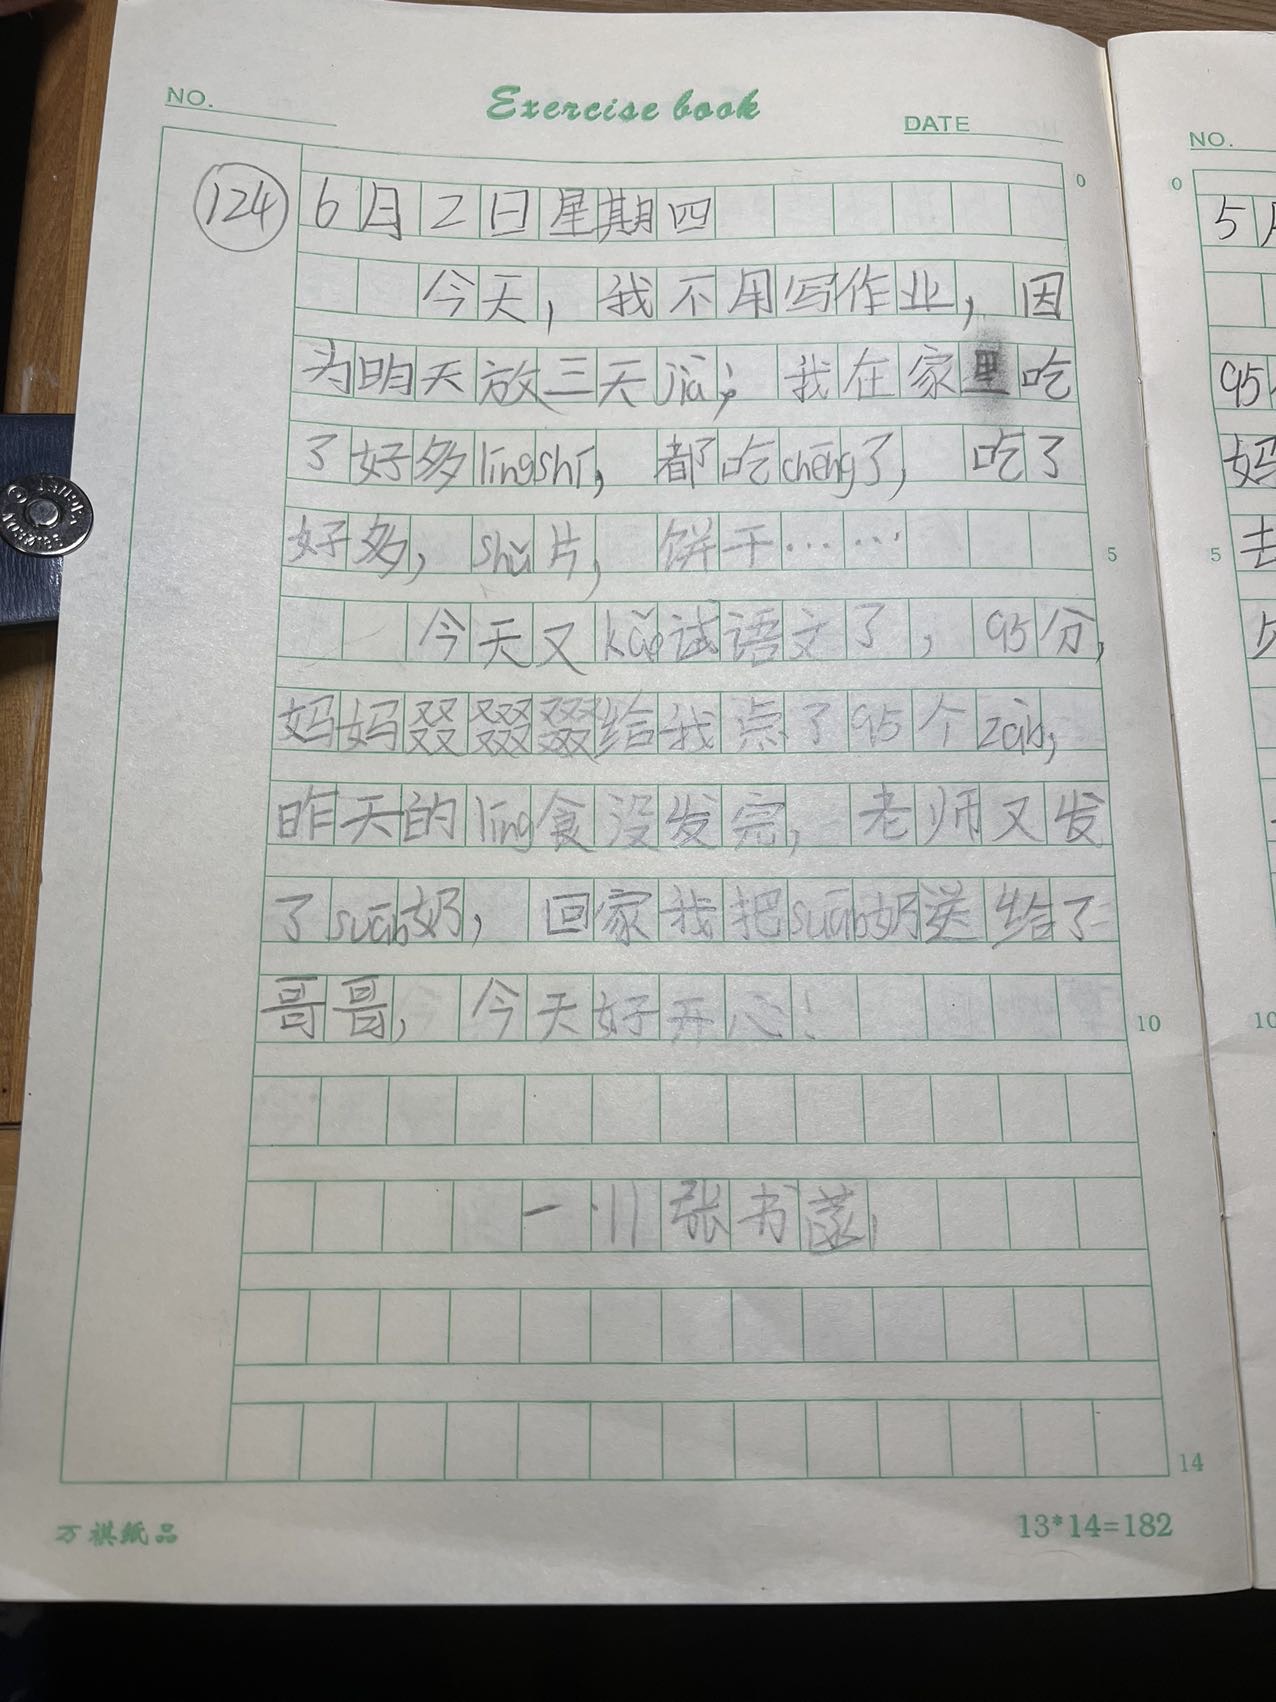 NO.
Exercise book
DATE
124 6月2日星期四
今天，我不用写作业，因
为明天放三天jià，我在家里吃
了好多língshí，都吃chēng了，吃了
好多，shǔ片，饼干……
今天又kǎo试语文了，95分，
妈妈叕叕叕给我点了95个zàn，
昨天的líng食没发完，老师又发
了suān奶，回家我把suān奶送给了
哥哥，今天好开心！
一·11张书菡
0
5
10
14
万祺纸品
13*14=182
NO.
0
5月
95
妈
5
去
10